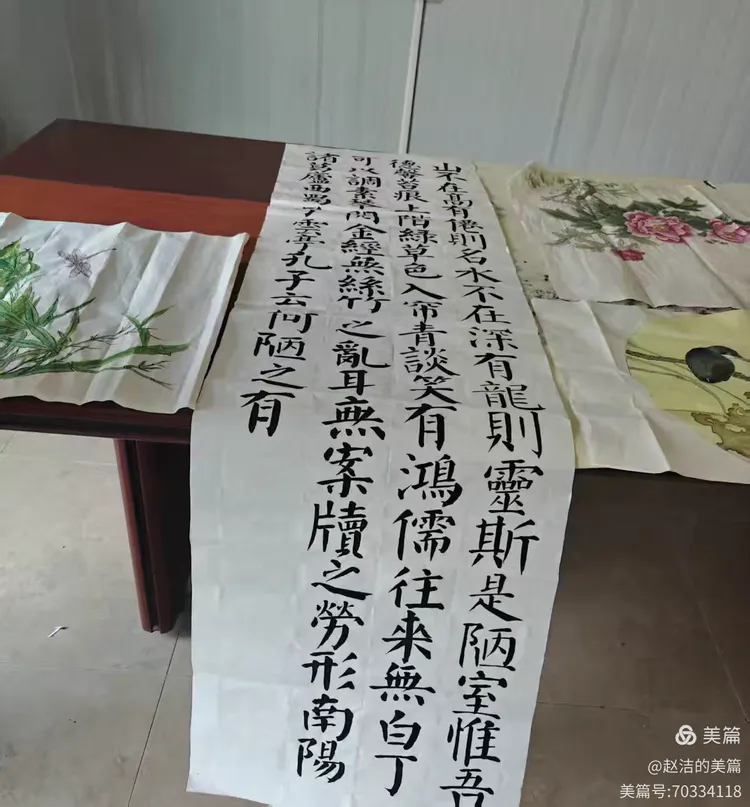 山不在高有僊則名水不在深有龍則靈斯是陋室惟吾
德馨苔痕上階綠草色入帘青談笑有鴻儒往来無白丁
可以調素琴閱金經無絲竹之亂耳無案牘之勞形南陽
諸葛廬西蜀子雲亭孔子云何陋之有
美篇
@赵洁的美篇
美篇号:70334118